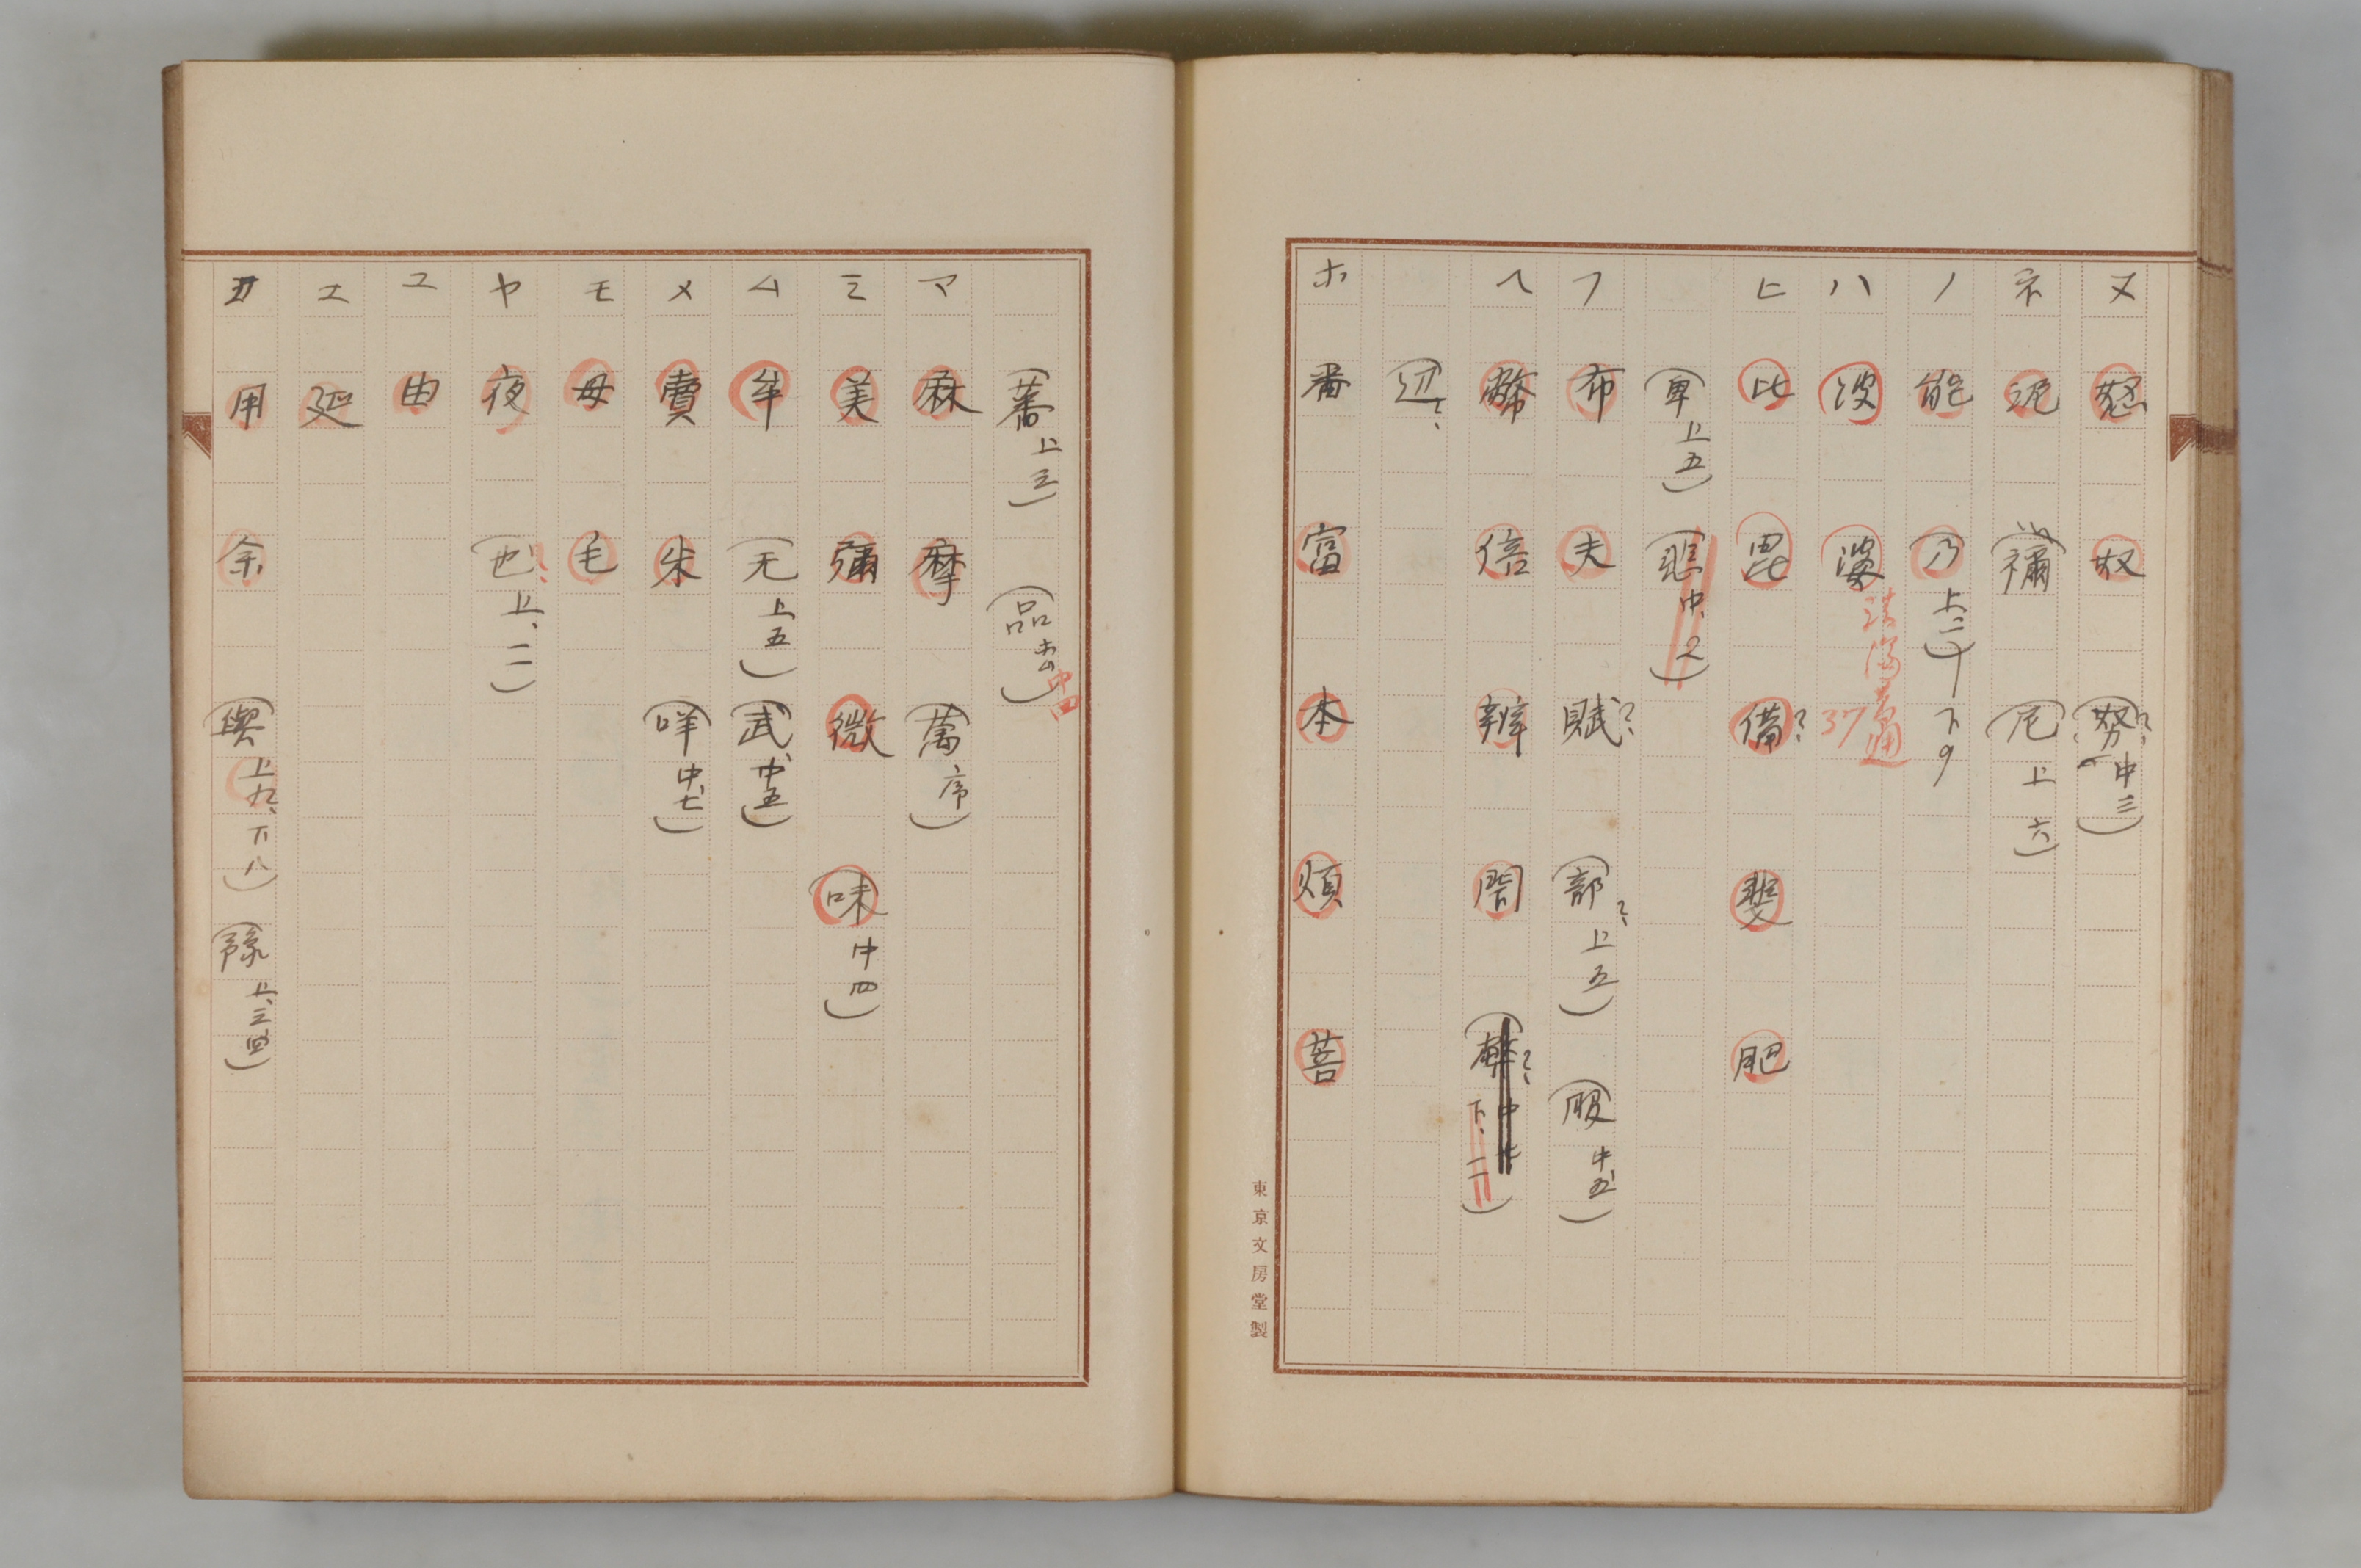 ヌ 怒 奴 （努？ 中三）
ネ 泥 （禰 （尼 上六）
ノ 能 （乃 上二十） 下9
ハ 波 婆
37
ヒ 比 毘 備？ 斐 肥
（卑 上五） （悲 中、2）
フ 布 夫 賦？ （部？ 上五） （服 中五）
ヘ 幣 倍 辨 閇 下、二）
（辺？
ホ 番 富 本 煩 菩
東京文房堂製
（蕃 上三） （品 中四
マ 麻 摩 （萬 序）
ミ 美 彌 微 （味 中四）
ム 牟 （无 上五） （武 中五）
メ 賣 米 （咩 中七）
モ 母 毛
ヤ 夜 （也 上、二）
ユ 由
エ 延
ヨ 用 余 （與 上九、下八） （豫 上、三四）